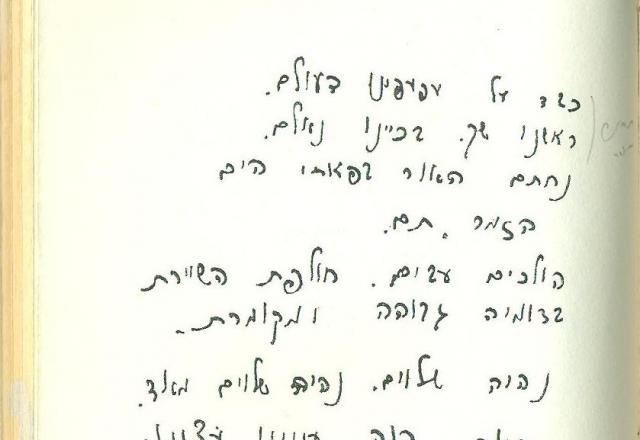 כבד על עפעפינו העולם.
ראשנו בכיינו נאלם.
נחתם האור בפאתי הים
הזמר תם.
הולכים עבים. חולפת השיירת
בדומיה גבוהה ומקומרת.
נהיה שלוים. נהיה שלוים מאוד.